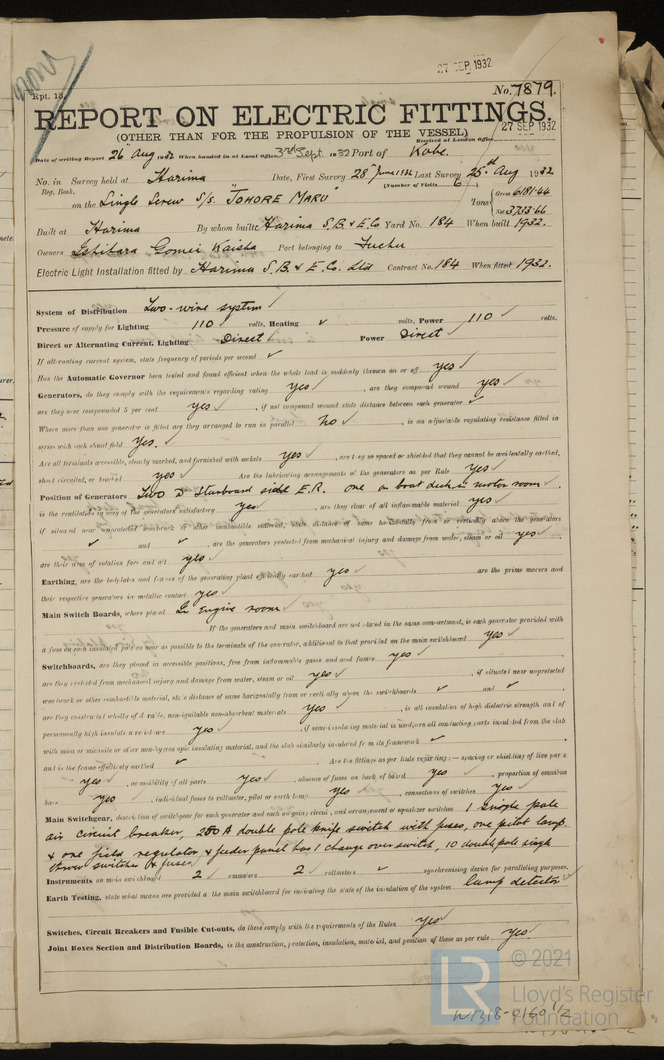 27 SEP 1932
Rpt. 13.
No. 7879.
REPORT ON ELECTRIC FITTINGS.
(OTHER THAN FOR THE PROPULSION OF THE VESSEL)
Received at London Office 27 SEP 1932
Date of writing Report 26th Aug 1932 When handed in at Local Office 3rd Sept. 1932 Port of Kobe.
No. in Survey held at Harima Date, First Survey 28th June 1932 Last Survey 25th Aug 1932
Reg. Book. (Number of Visits 6)
on the Single Screw S/S. "JOHORE MARU" Tons Gross 6181.44 Net 3733.66
Built at Harima By whom built Harima S.B. & E.Co Yard No. 184 When built 1932.
Owners Ishihara Gomei Kaisha Port belonging to Fuchu
Electric Light Installation fitted by Harima S.B. & E. Co. Ltd Contract No. 184 When fitted 1932.
System of Distribution Two-wire system
Pressure of supply for Lighting 110 volts, Heating ✓ volts, Power 110 volts.
Direct or Alternating Current, Lighting Direct Power Direct
If alternating current system, state frequency of periods per second ✓
Has the Automatic Governor been tested and found efficient when the whole load is suddenly thrown on or off yes
Generators, do they comply with the requirements regarding rating yes , are they compound wound yes
are they over compounded 5 per cent. yes , if not compound wound state distance between each generator ✓
Where more than one generator is fitted are they arranged to run in parallel no , is an adjustable regulating resistance fitted in
series with each shunt field yes.
Are all terminals accessible, clearly marked, and furnished with sockets yes , are they so spaced or shielded that they cannot be accidentally earthed,
short circuited, or touched yes Are the lubricating arrangements of the generators as per Rule yes
Position of Generators Two Starboard side E.R. one on boat deck in motor room
is the ventilation in way of the generators satisfactory yes , are they clear of all inflammable material yes
if situated near unprotected woodwork or other combustible material, state distance of same horizontally from or vertically above the generators
✓ and ✓ , are the generators protected from mechanical injury and damage from water, steam or oil yes
are their axes of rotation fore and aft yes
Earthing, are the bedplates and frames of the generating plant efficiently earthed yes are the prime movers and
their respective generators in metallic contact yes
Main Switch Boards, where placed In Engine room
If the generators and main switchboard are not placed in the same compartment, is each generator provided with
a fuse on each insulated pole as near as possible to the terminals of the generator, additional to that provided on the main switchboard yes
Switchboards, are they placed in accessible positions, free from inflammable gases and acid fumes yes
are they protected from mechanical injury and damage from water, steam or oil yes , if situated near unprotected
woodwork or other combustible material, state distance of same horizontally from or vertically above the switchboards ✓ and ✓
are they constructed wholly of durable, non-ignitable non-absorbent materials yes , is all insulation of high dielectric strength and of
permanently high insulation resistance yes , if semi-insulating material is used, are all conducting parts insulated from the slab
with mica or micanite or other non-hygroscopic insulating material, and the slab similarly insulated from its framework ✓
and is the frame effectively earthed ✓ Are the fittings as per Rule regarding:— spacing or shielding of live parts
yes , accessibility of all parts yes , absence of fuses on back of board yes , proportion of omnibus
bars yes , individual fuses to voltmeter, pilot or earth lamp yes , connections of switches yes
Main Switchgear, description of switchgear for each generator and each outgoing circuit, and arrangement of equalizer switches 1 single pole
air circuit breaker, 250 A double pole knife switch with fuses, one pilot lamp
& one field regulator & feeder panel has 1 change over switch, 10 double pole single
throw switches & fuses
Instruments on main switchboard 2 ammeters 2 voltmeters ✓ synchronising device for paralleling purposes.
Earth Testing, state what means are provided at the main switchboard for indicating the state of the insulation of the system Lamp detector
Switches, Circuit Breakers and Fusible Cut-outs, do these comply with the requirements of the Rules yes
Joint Boxes Section and Distribution Boards, is the construction, protection, insulation, material, and position of these as per rule yes.
LR
© 2021
Lloyd's Register
Foundation
W1318-0160 1/2